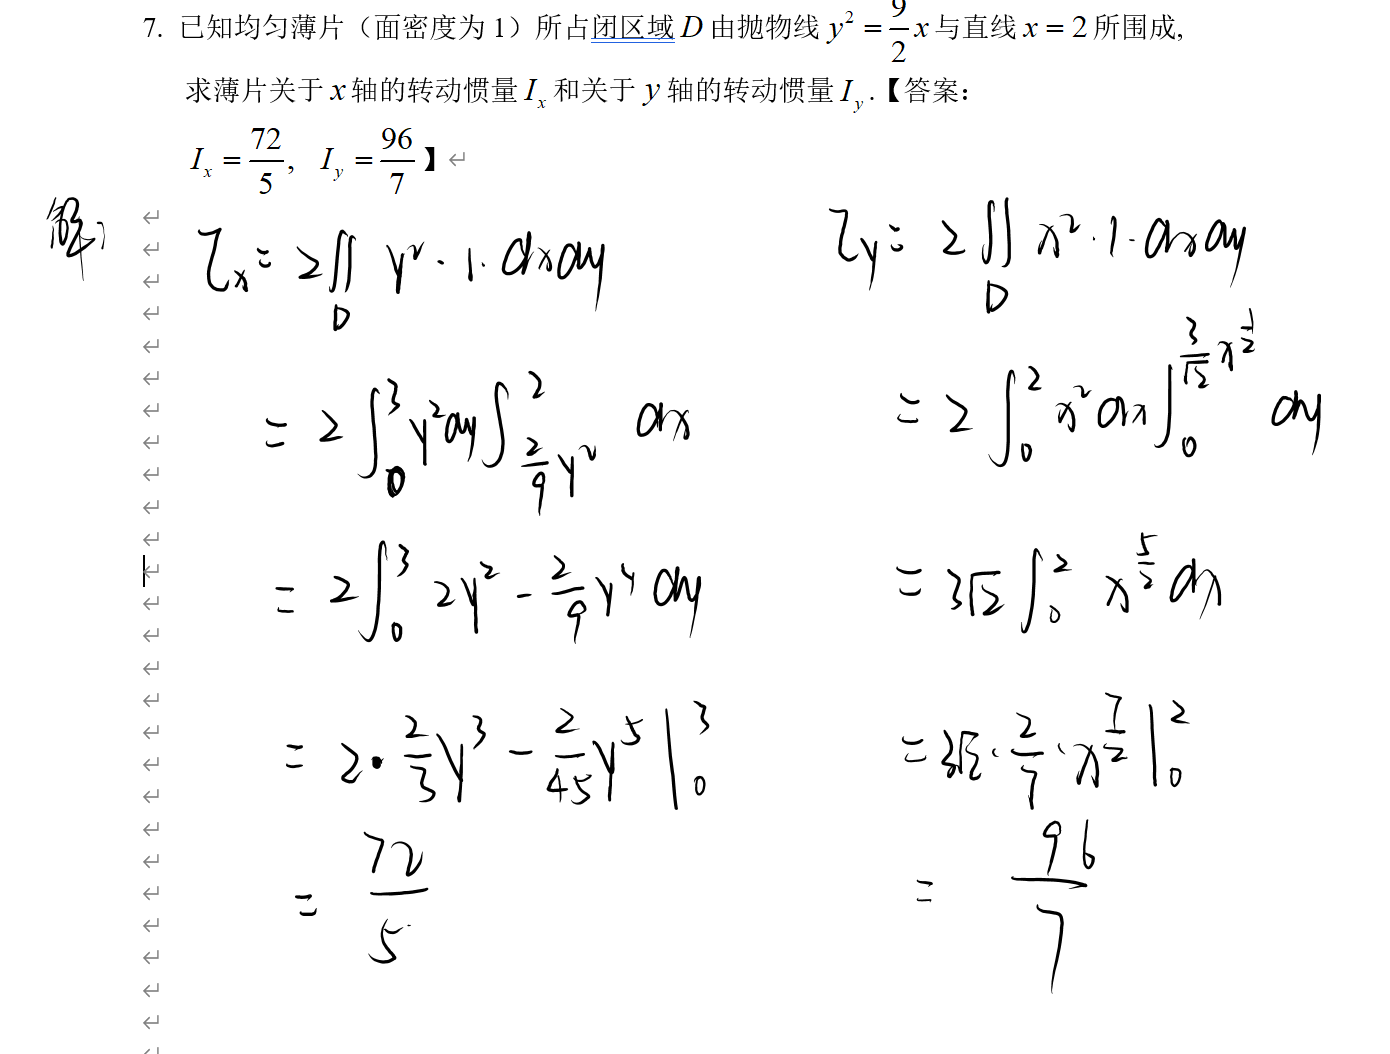 7. 已知均匀薄片（面密度为 1）所占闭区域 D 由抛物线 y² = 9/2 x 与直线 x = 2 所围成,
求薄片关于 x 轴的转动惯量 I_x 和关于 y 轴的转动惯量 I_y .【答案：
I_x = 72/5, I_y = 96/7】
解：
I_x = 2∬_D y²·1·dxdy
= 2∫_0^3 y²dy ∫_{2/9 y²}^2 dx
= 2∫_0^3 2y² - 2/9 y⁴ dy
= 2·2/3 y³ - 2/45 y⁵ |_0^3
= 72/5
I_y = 2∬_D x²·1·dxdy
= 2∫_0^2 x²dx ∫_0^{3/√2 x^{1/2}} dy
= 3√2 ∫_0^2 x^{5/2} dx
= 3√2·2/7·x^{7/2} |_0^2
= 96/7